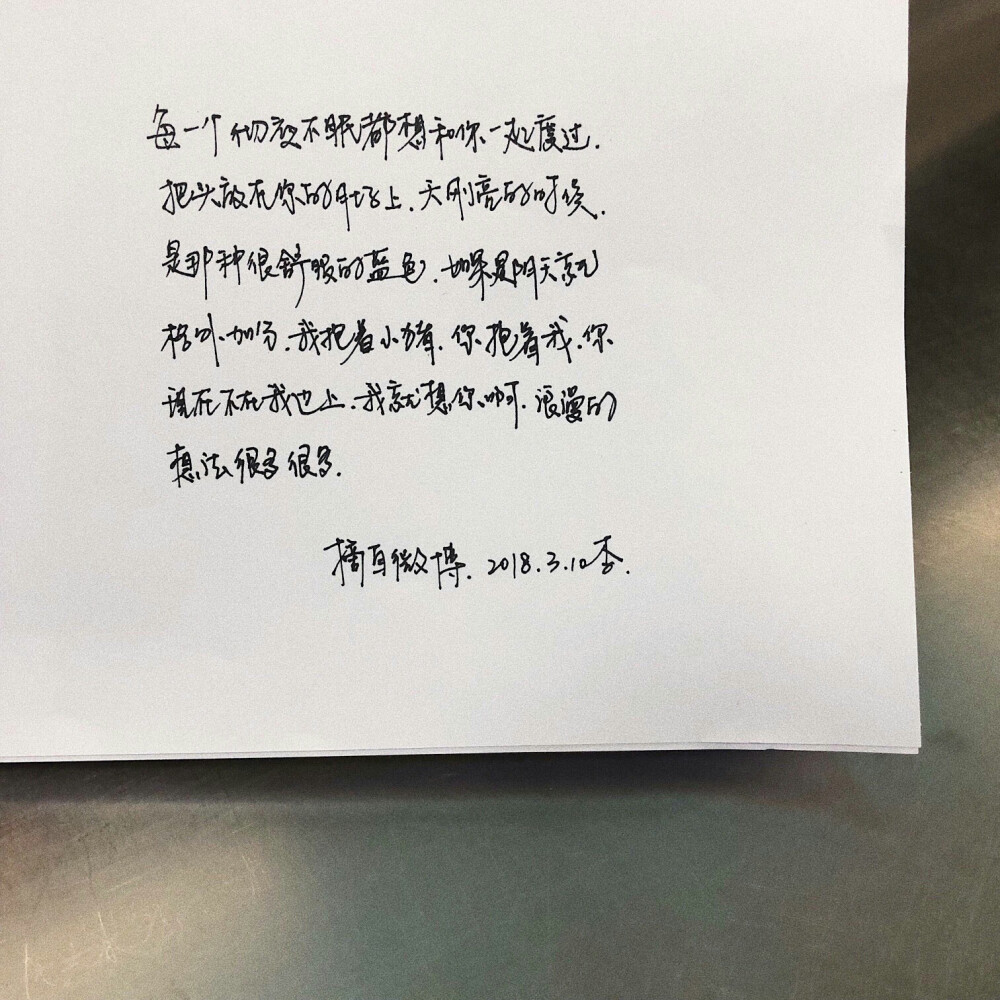 每一个彻夜不眠都想和你一起度过.
把头放在你的肚子上.天刚亮的时候.
是那种很舒服的蓝色.如果是阴天就
格外加分.我抱着小猪.你抱着我.你
说在不在我也上.我就想你啊.浪漫的
想法很多很多.
摘自微博.2018.3.10李.